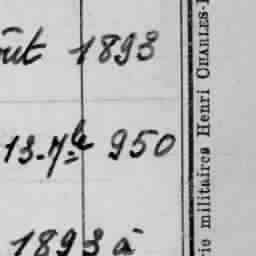 oût 1893
13. Mle 950
1893 à
rie militaires Henri CHARLES-